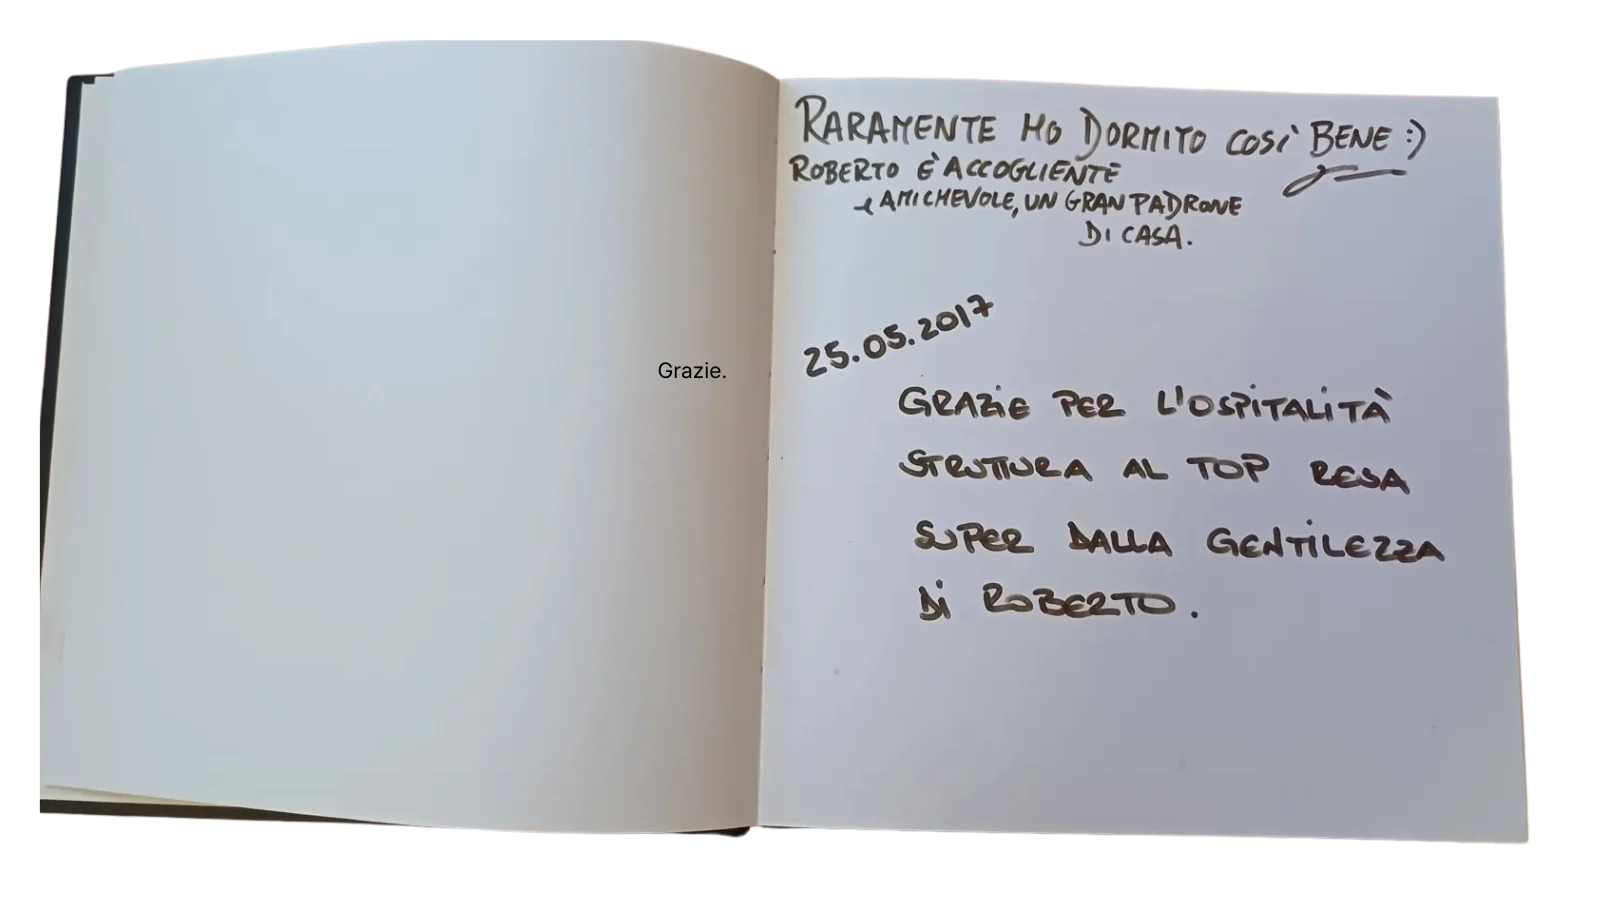 Grazie.
RARAMENTE HO DORMITO COSÌ BENE :)
ROBERTO È ACCOGLIENTE
e AMICHEVOLE, UN GRAN PADRONE
DI CASA.
25.05.2017
GRAZIE PER L'OSPITALITÀ
STRUTTURA AL TOP RESA
SUPER DALLA GENTILEZZA
DI ROBERTO.